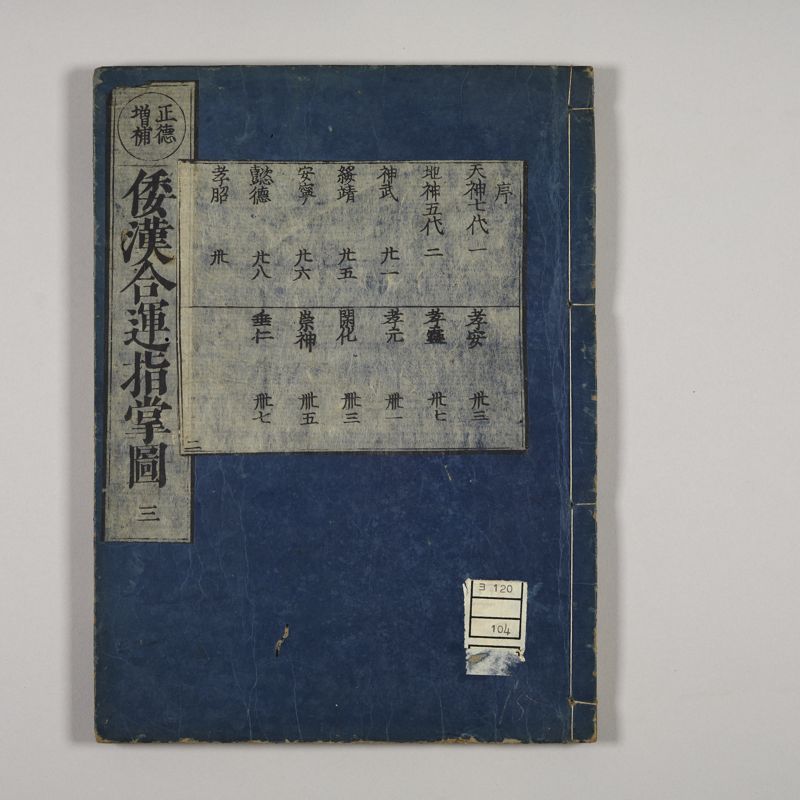 正德
増補
倭漢合運指掌圖 三
序
天神七代 一
地神五代 二
神武 廿一
綏靖 廿五
安寧 廿六
懿德 廿八
孝昭 卅
孝安 卅三
孝靈 卅七
孝元 卌一
開化 卌三
崇神 卌五
垂仁 卌七
二
ヨ 120
104